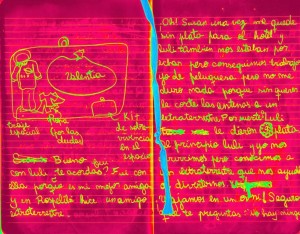 Valentia
traje
especial
flore
(por las
dudas)
Kit
de sobre-
vivencia
en el
espacio
Bueno fui
con Luli te acordas? Fui con
ella porque es mi mejor amiga
y en Respeldo hice un amigo
extraterrestre
Oh! Suran una vez me quede
sin plata para el hotel y
Luli tambien nos estaban por
echar pero conseguimos trabajo
yo de peluquera pero no me
duro nada porque sin querer
le corte las antenas a un
extraterrestre. Por suerte Luli
le dieron plata
al principio Luli y yo nos
aburrimos pero conocimos a
un extraterrestre que nos ayudo
a divertirnos
Viajamos en un ovni! Seguro
que te preguntas: no hay ningun